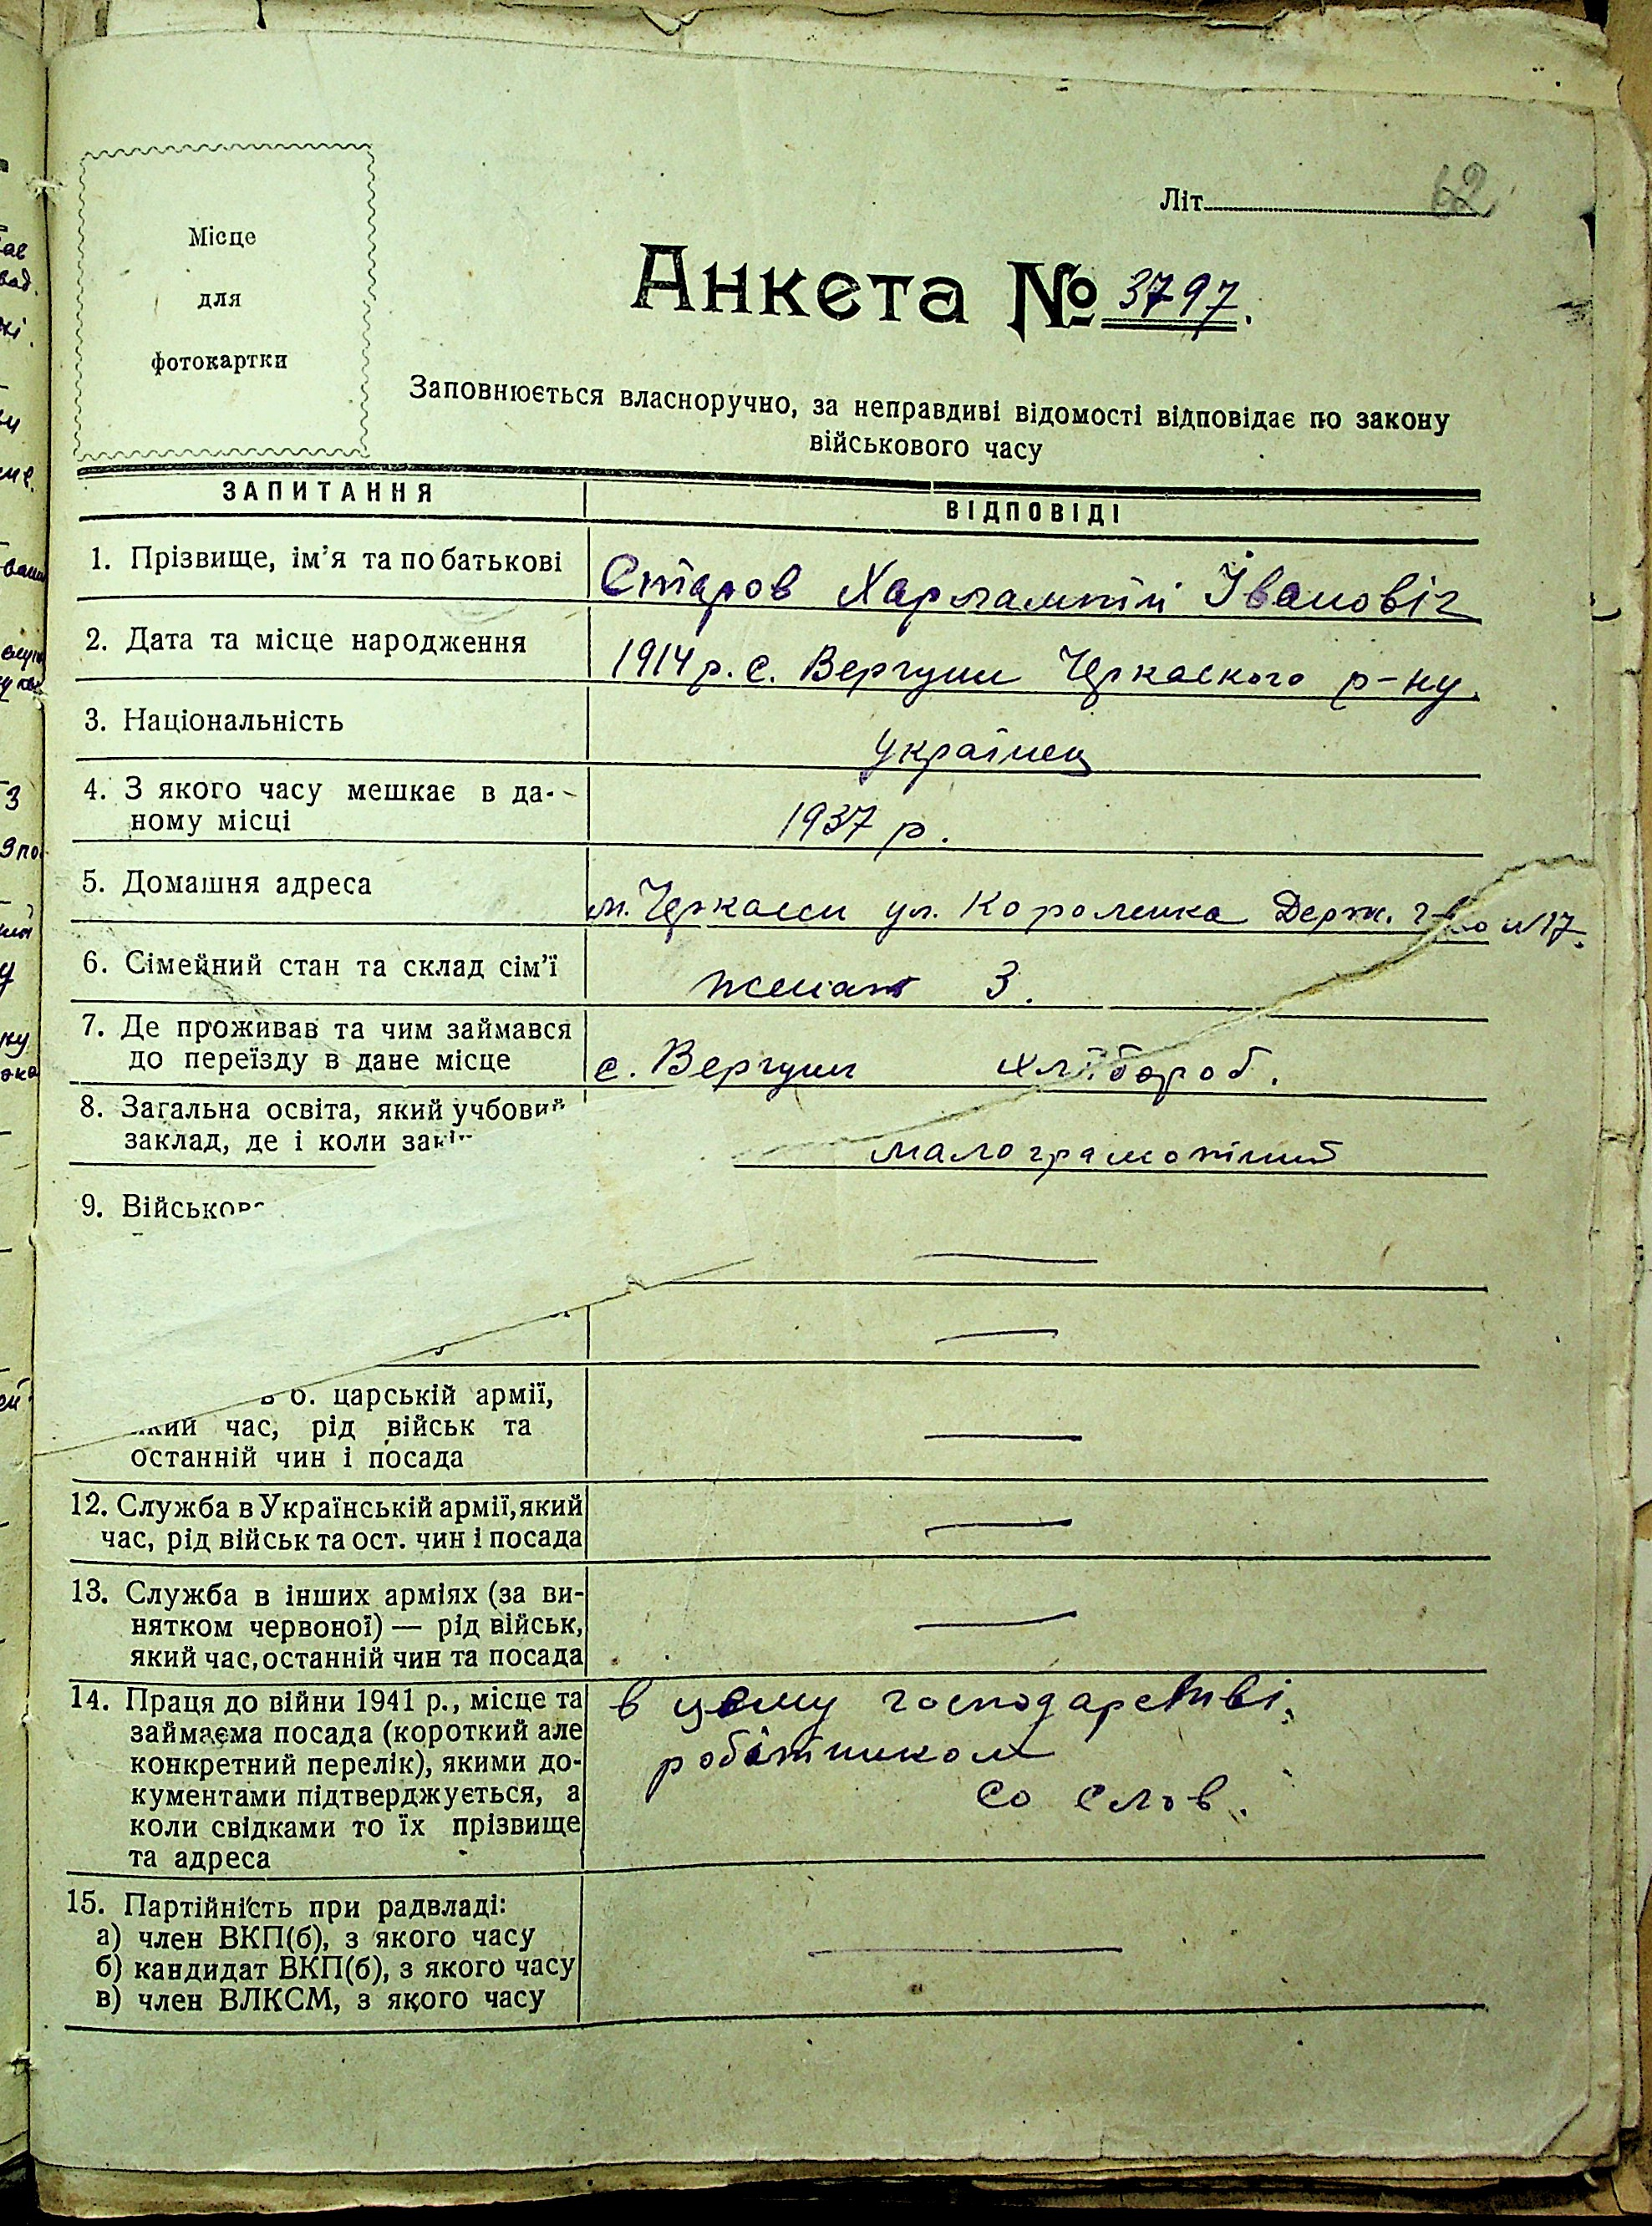 62
Літ
Місце
для
фотокартки
Анкета № 3797.
Заповнюється власноручно, за неправдиві відомості відповідає по закону
військового часу
ЗАПИТАННЯ ВІДПОВІДІ
1. Прізвище, ім'я та по батькові Старов Харлампій Івановіч
2. Дата та місце народження 1914 р. с. Вергуни Черкаського р-ну.
3. Національність українец
4. З якого часу мешкає в да-
ному місці 1937 р.
5. Домашня адреса м. Черкасси ул. Короленка Держ. №17.
6. Сімейний стан та склад сім'ї женат 3.
7. Де проживав та чим займався
до переїзду в дане місце с. Вергуни хлібороб.
8. Загальна освіта, який учбовий
заклад, де і коли малограмотний
9. Військов
—
—
в б. царській армії,
який час, рід військ та
останній чин і посада —
12. Служба в Українській армії, який
час, рід військ та ост. чин і посада —
13. Служба в інших арміях (за ви-
нятком червоної) — рід військ,
який час, останній чин та посада —
14. Праця до війни 1941 р., місце та в цьому господарстві,
займаєма посада (короткий але
конкретний перелік), якими до- робітником
кументами підтверджується, а со слов.
коли свідками то їх прізвище
та адреса
15. Партійність при радвладі:
а) член ВКП(б), з якого часу
б) кандидат ВКП(б), з якого часу —
в) член ВЛКСМ, з якого часу